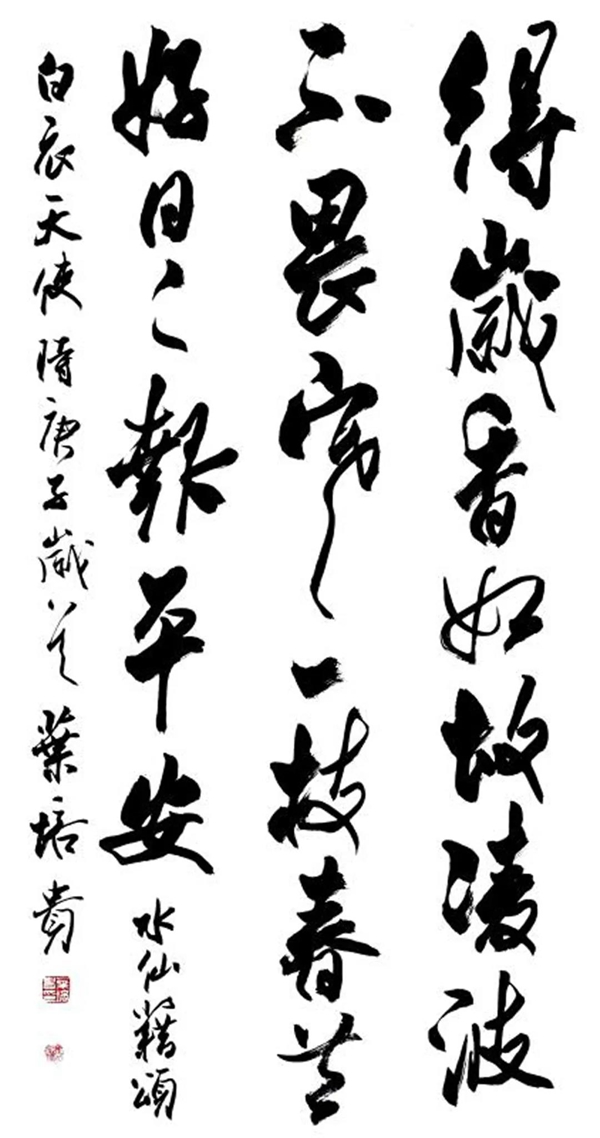 得歲香如故凌波
不畏寒一枝春共
好日〻報平安 水仙藉頌
白衣天使 時庚子歲首 葉培貴